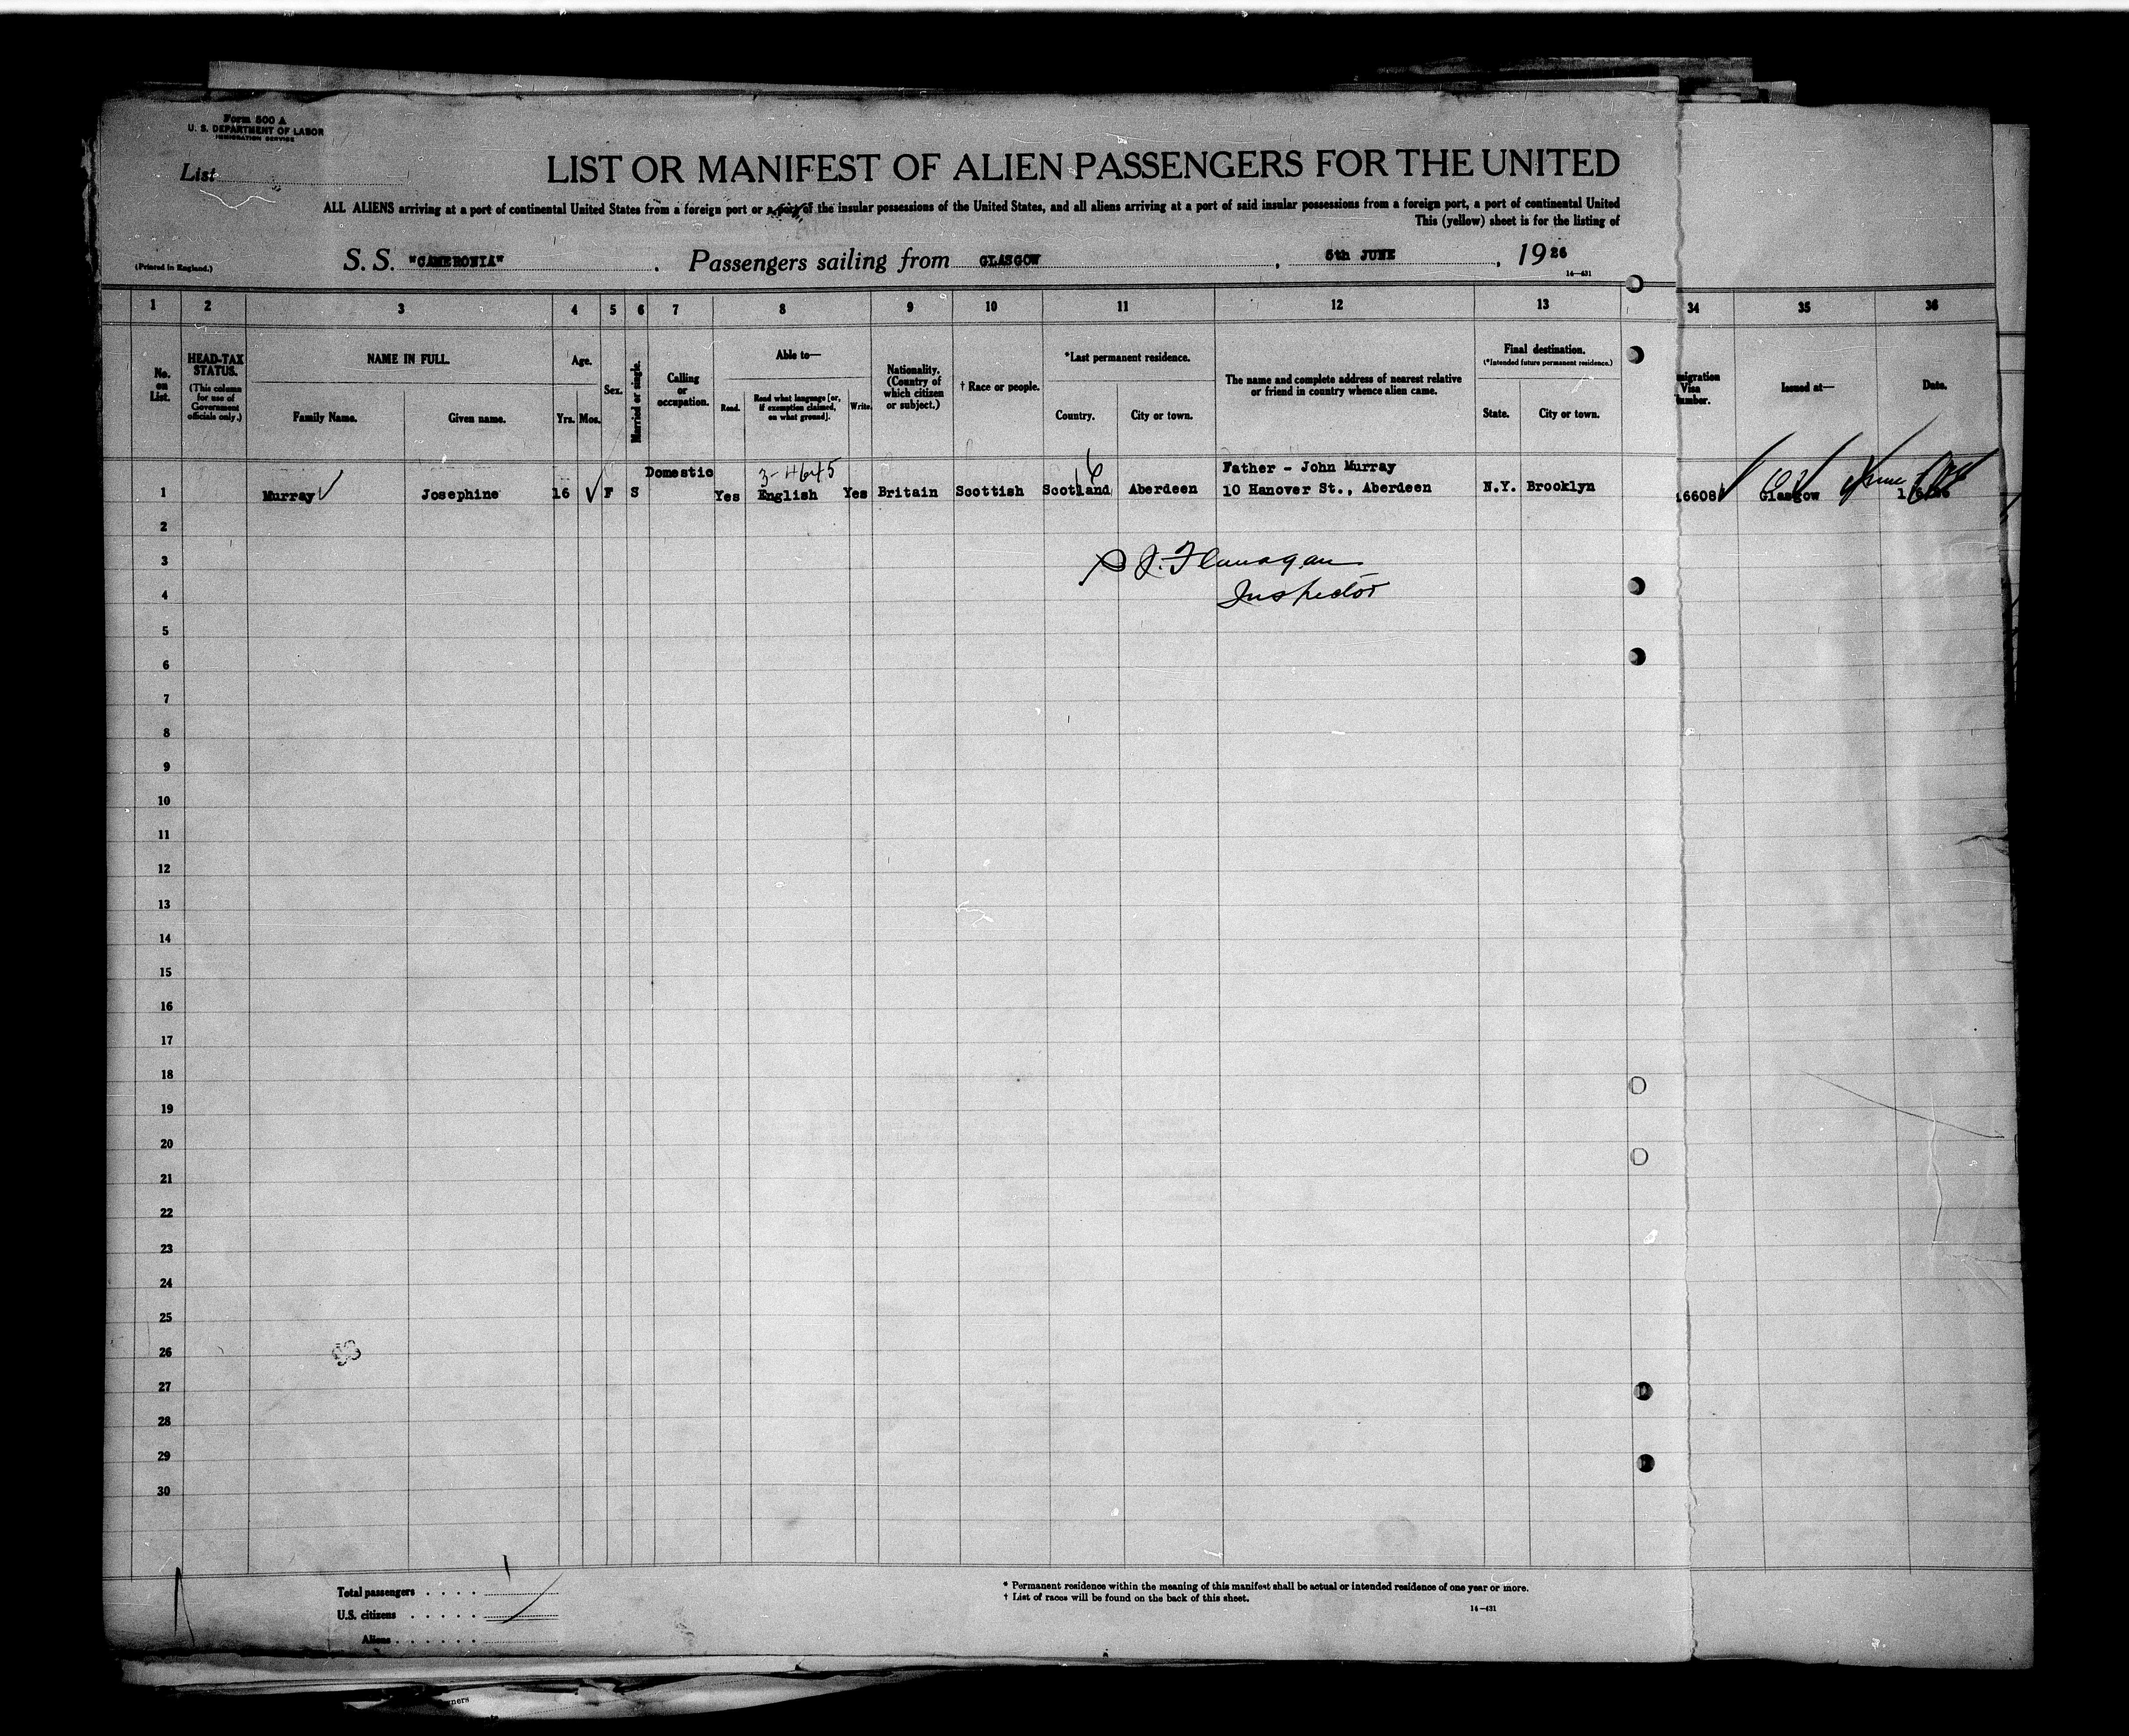 Form 500 A
U. S. DEPARTMENT OF LABOR
IMMIGRATION SERVICE
List
LIST OR MANIFEST OF ALIEN PASSENGERS FOR THE UNITED
ALL ALIENS arriving at a port of continental United States from a foreign port or a port of the insular possessions of the United States, and all aliens arriving at a port of said insular possessions from a foreign port, a port of continental United
This (yellow) sheet is for the listing of
(Printed in England.)
S. S. "CAMERONIA" . Passengers sailing from GLASGOW , 5th JUNE , 1926
14—431
1 2 3 4 5 6 7 8 9 10 11 12 13 34 35 36
No. on List.
HEAD-TAX STATUS. (This column for use of Government officials only.)
NAME IN FULL.
Family Name. Given name.
Age.
Yrs. Mos.
Sex.
Married or single.
Calling or occupation.
Able to—
Read. Read what language [or, if exemption claimed, on what ground]. Write.
Nationality. (Country of which citizen or subject.)
† Race or people.
*Last permanent residence.
Country. City or town.
The name and complete address of nearest relative or friend in country whence alien came.
Final destination.
(*Intended future permanent residence.)
State. City or town.
migration Visa umber.
Issued at—
Date.
Domestic Father - John Murray
1 Murray Josephine 16 F S Yes English Yes Britain Scottish Scotland Aberdeen 10 Hanover St., Aberdeen N.Y. Brooklyn 16608 Glasgow
2
3 J. Flanagan
4 Inspector
5
6
7
8
9
10
11
12
13
14
15
16
17
18
19
20
21
22
23
24
25
26
27
28
29
30
Total passengers . . . .
U.S. citizens . . . . .
Aliens . . . . . .
* Permanent residence within the meaning of this manifest shall be actual or intended residence of one year or more.
† List of races will be found on the back of this sheet.
14—431